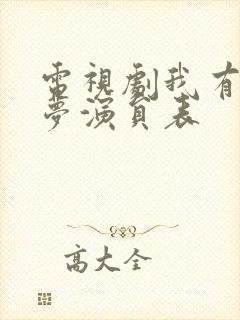 電視劇我有
夢演員表
高大全